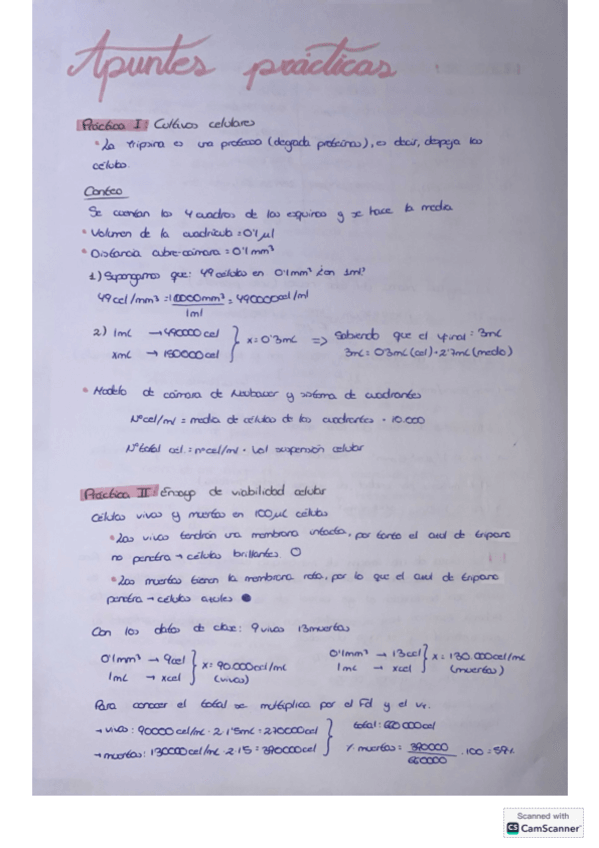 Apuntes prácticas
Práctica I: Cultivos celulares
• La tripsina es una proteasa (degrada proteínas), es decir, despega las
células.
Conteo
Se cuentan los 4 cuadros de las esquinas y se hace la media
• Volumen de la cuadrícula = 0'1 µl
• Distancia cubre-cámara = 0'1 mm³
1) Supongamos que: 49 células en 0'1mm³ ¿en 1ml?
49 cel/mm³ = 10000mm³ / 1ml = 490000 cel/ml
2) 1mL → 490000 cel } x = 0'3mL => Sabiendo que el Vfinal = 3mL
xmL → 150000 cel 3mL = 0'3mL (cel) + 2'7mL (medio)
• Modelo de cámara de Neubauer y sistema de cuadrantes
Nº cel/ml = media de células de los cuadrantes · 10.000
Nº total cel. = nº cel/ml · Vol suspensión celular
Práctica II: Ensayo de viabilidad celular
Células vivas y muertas en 100µL células
• Las vivas tendrán una membrana intacta, por tanto el azul de tripano
no penetra → células brillantes O
• Las muertas tienen la membrana rota, por lo que el azul de tripano
penetra → células azules
Con los datos de clase: 9 vivas 13 muertas
0'1mm³ → 9cel } x = 90.000 cel/mL 0'1mm³ → 13cel } x = 130.000 cel/mL
1mL → xcel (vivas) 1mL → xcel (muertas)
Para conocer el total se multiplica por el Fd y el
→ vivas: 90000 cel/mL · 2 · 1'5mL = 270000 cel } total: 660000 cel
→ muertas: 130000 cel/mL · 2 · 1'5 = 390000 cel % muertas = 390000 / 660000 · 100 = 59%
Scanned with
CS CamScanner